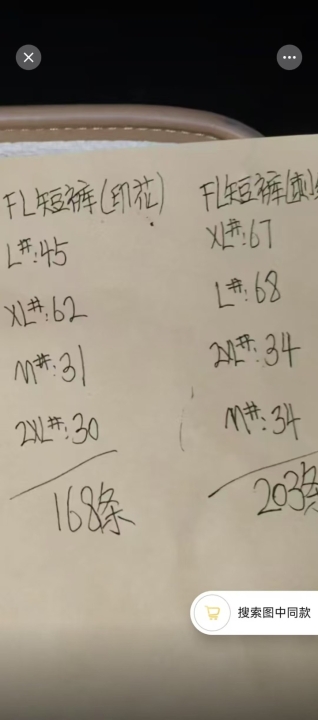 FL短裤(印花)
L#:45
XL#:62
M#:31
2XL#:30
168条
FL短裤(刺
XL#:67
L#:68
2XL#:34
M#:34
203条
搜索图中同款